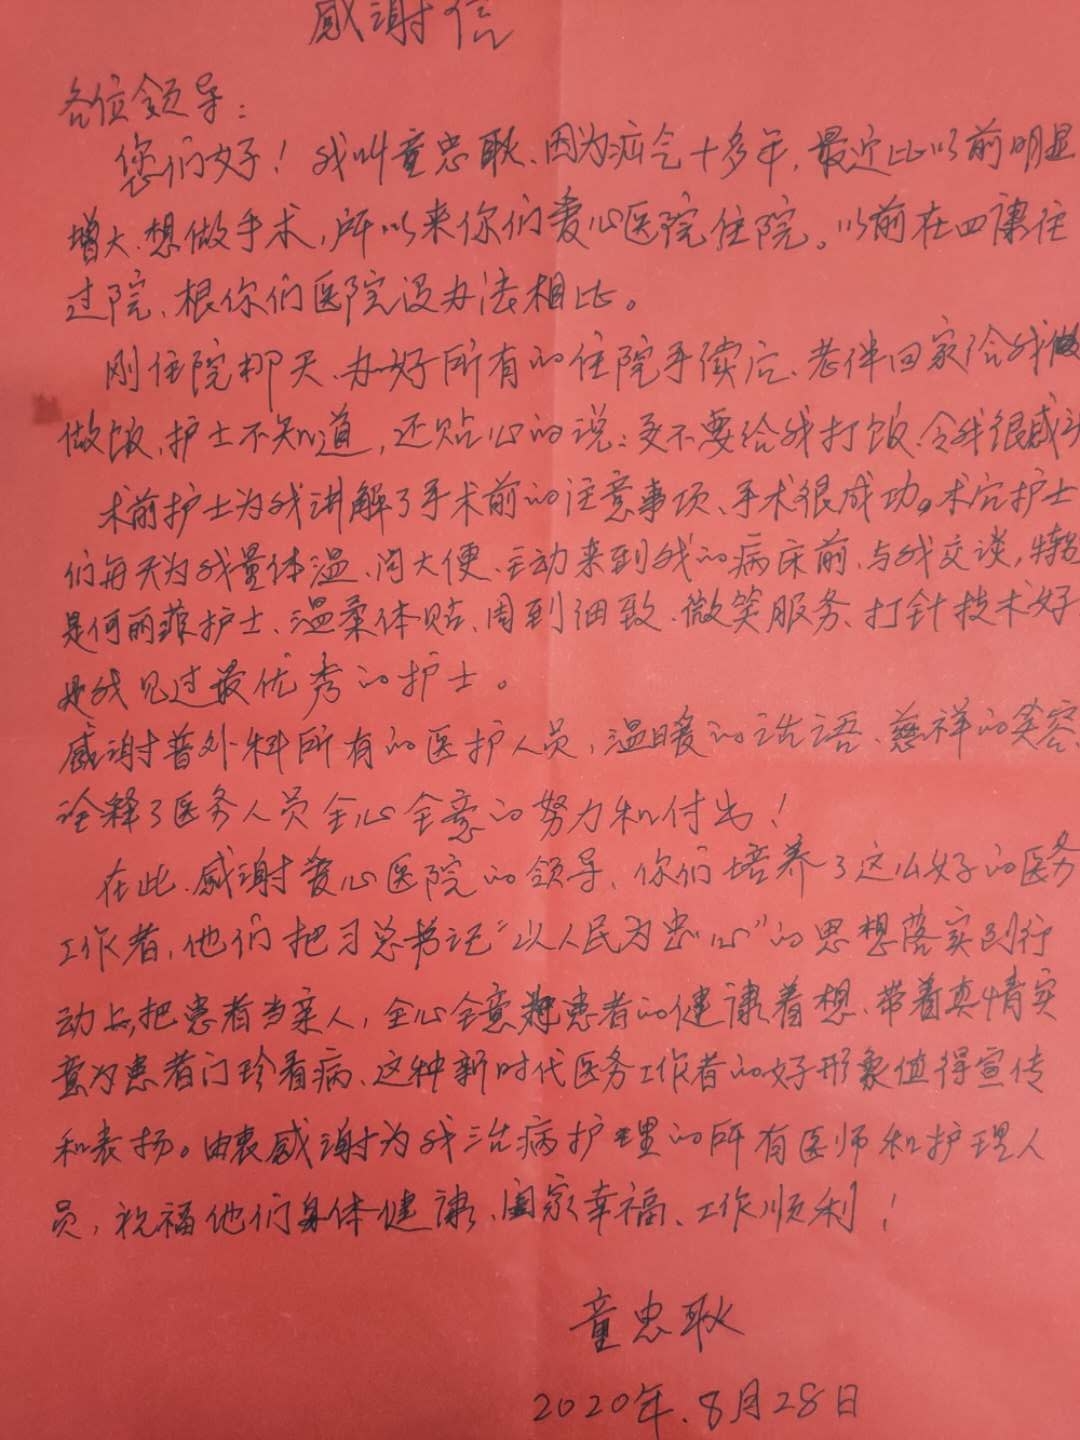 感谢信
各位领导：
您们好！我叫童忠耿、因为疝气十多年，最近比以前明显
增大、想做手术，所以来你们爱心医院住院。以前在四康住
过院、根你们医院没办法相比。
刚住院那天、办好所有的住院手续后、老伴回家给我
做饭，护士不知道，还贴心的说：要不要给我打饭、令我很感
术前护士为我讲解了手术前的注意事项、手术很成功。术完护士
们每天为我量体温、问大便、主动来到我的病床前、与我交谈，特
是何丽菲护士、温柔体贴、周到细致、微笑服务、打针技术好
是我见过最优秀的护士。
感谢普外科所有的医护人员，温暖的话语、慈祥的笑容、
诠释了医务人员全心全意的努力和付出！
在此、感谢爱心医院的领导、你们培养了这么好的医务
工作者，他们把习总书记“以人民为忠心”的思想落实到行
动上，把患者当亲人，全心全意患者的健康着想、带着真情实
意为患者门珍看病、这种新时代医务工作者的好形象值得宣传
和表扬。由衷感谢为我治病护理的所有医师和护理人
员，祝福他们身体健康、家幸福、工作顺利！
童忠耿
2020年、8月28日